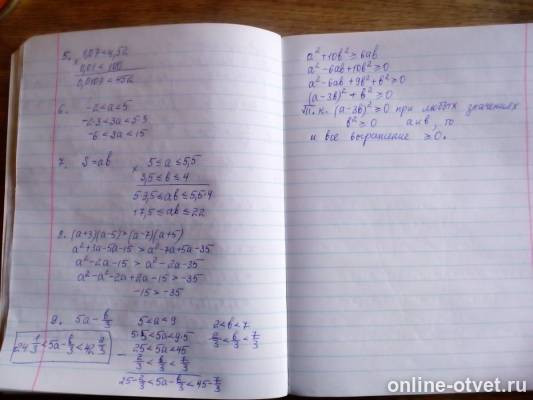 5. 1,07 < 4,52
× 0,01 < 100
0,0107 < 452
6. -2 < a < 5
-2·3 < 3a < 5·3
-6 < 3a < 15
7. S = ab
5 ≤ a ≤ 5,5
× 3,5 ≤ b ≤ 4
5·3,5 ≤ ab ≤ 5,5·4
17,5 ≤ ab ≤ 22
8. (a+3)(a-5) > (a-7)(a+5)
a²+3a-5a-15 > a²-7a+5a-35
a²-2a-15 > a²-2a-35
a²-a²-2a+2a-15 > -35
-15 > -35
9. 5a - b/3 5 < a < 9 2 < b < 7
5·5 < 5a < 9·5 2/3 < b/3 < 7/3
25 < 5a < 45
- 2/3 < b/3 < 7/3
25 - 2/3 < 5a - b/3 < 45 - 7/3
a² + 10b² ≥ 6ab
a² - 6ab + 10b² ≥ 0
a² - 6ab + 9b² + b² ≥ 0
(a-3b)² + b² ≥ 0
Т.к. (a-3b)² ≥ 0 при любых значениях
b² ≥ 0 a и b, то
и все выражение ≥ 0.
online-otvet.ru